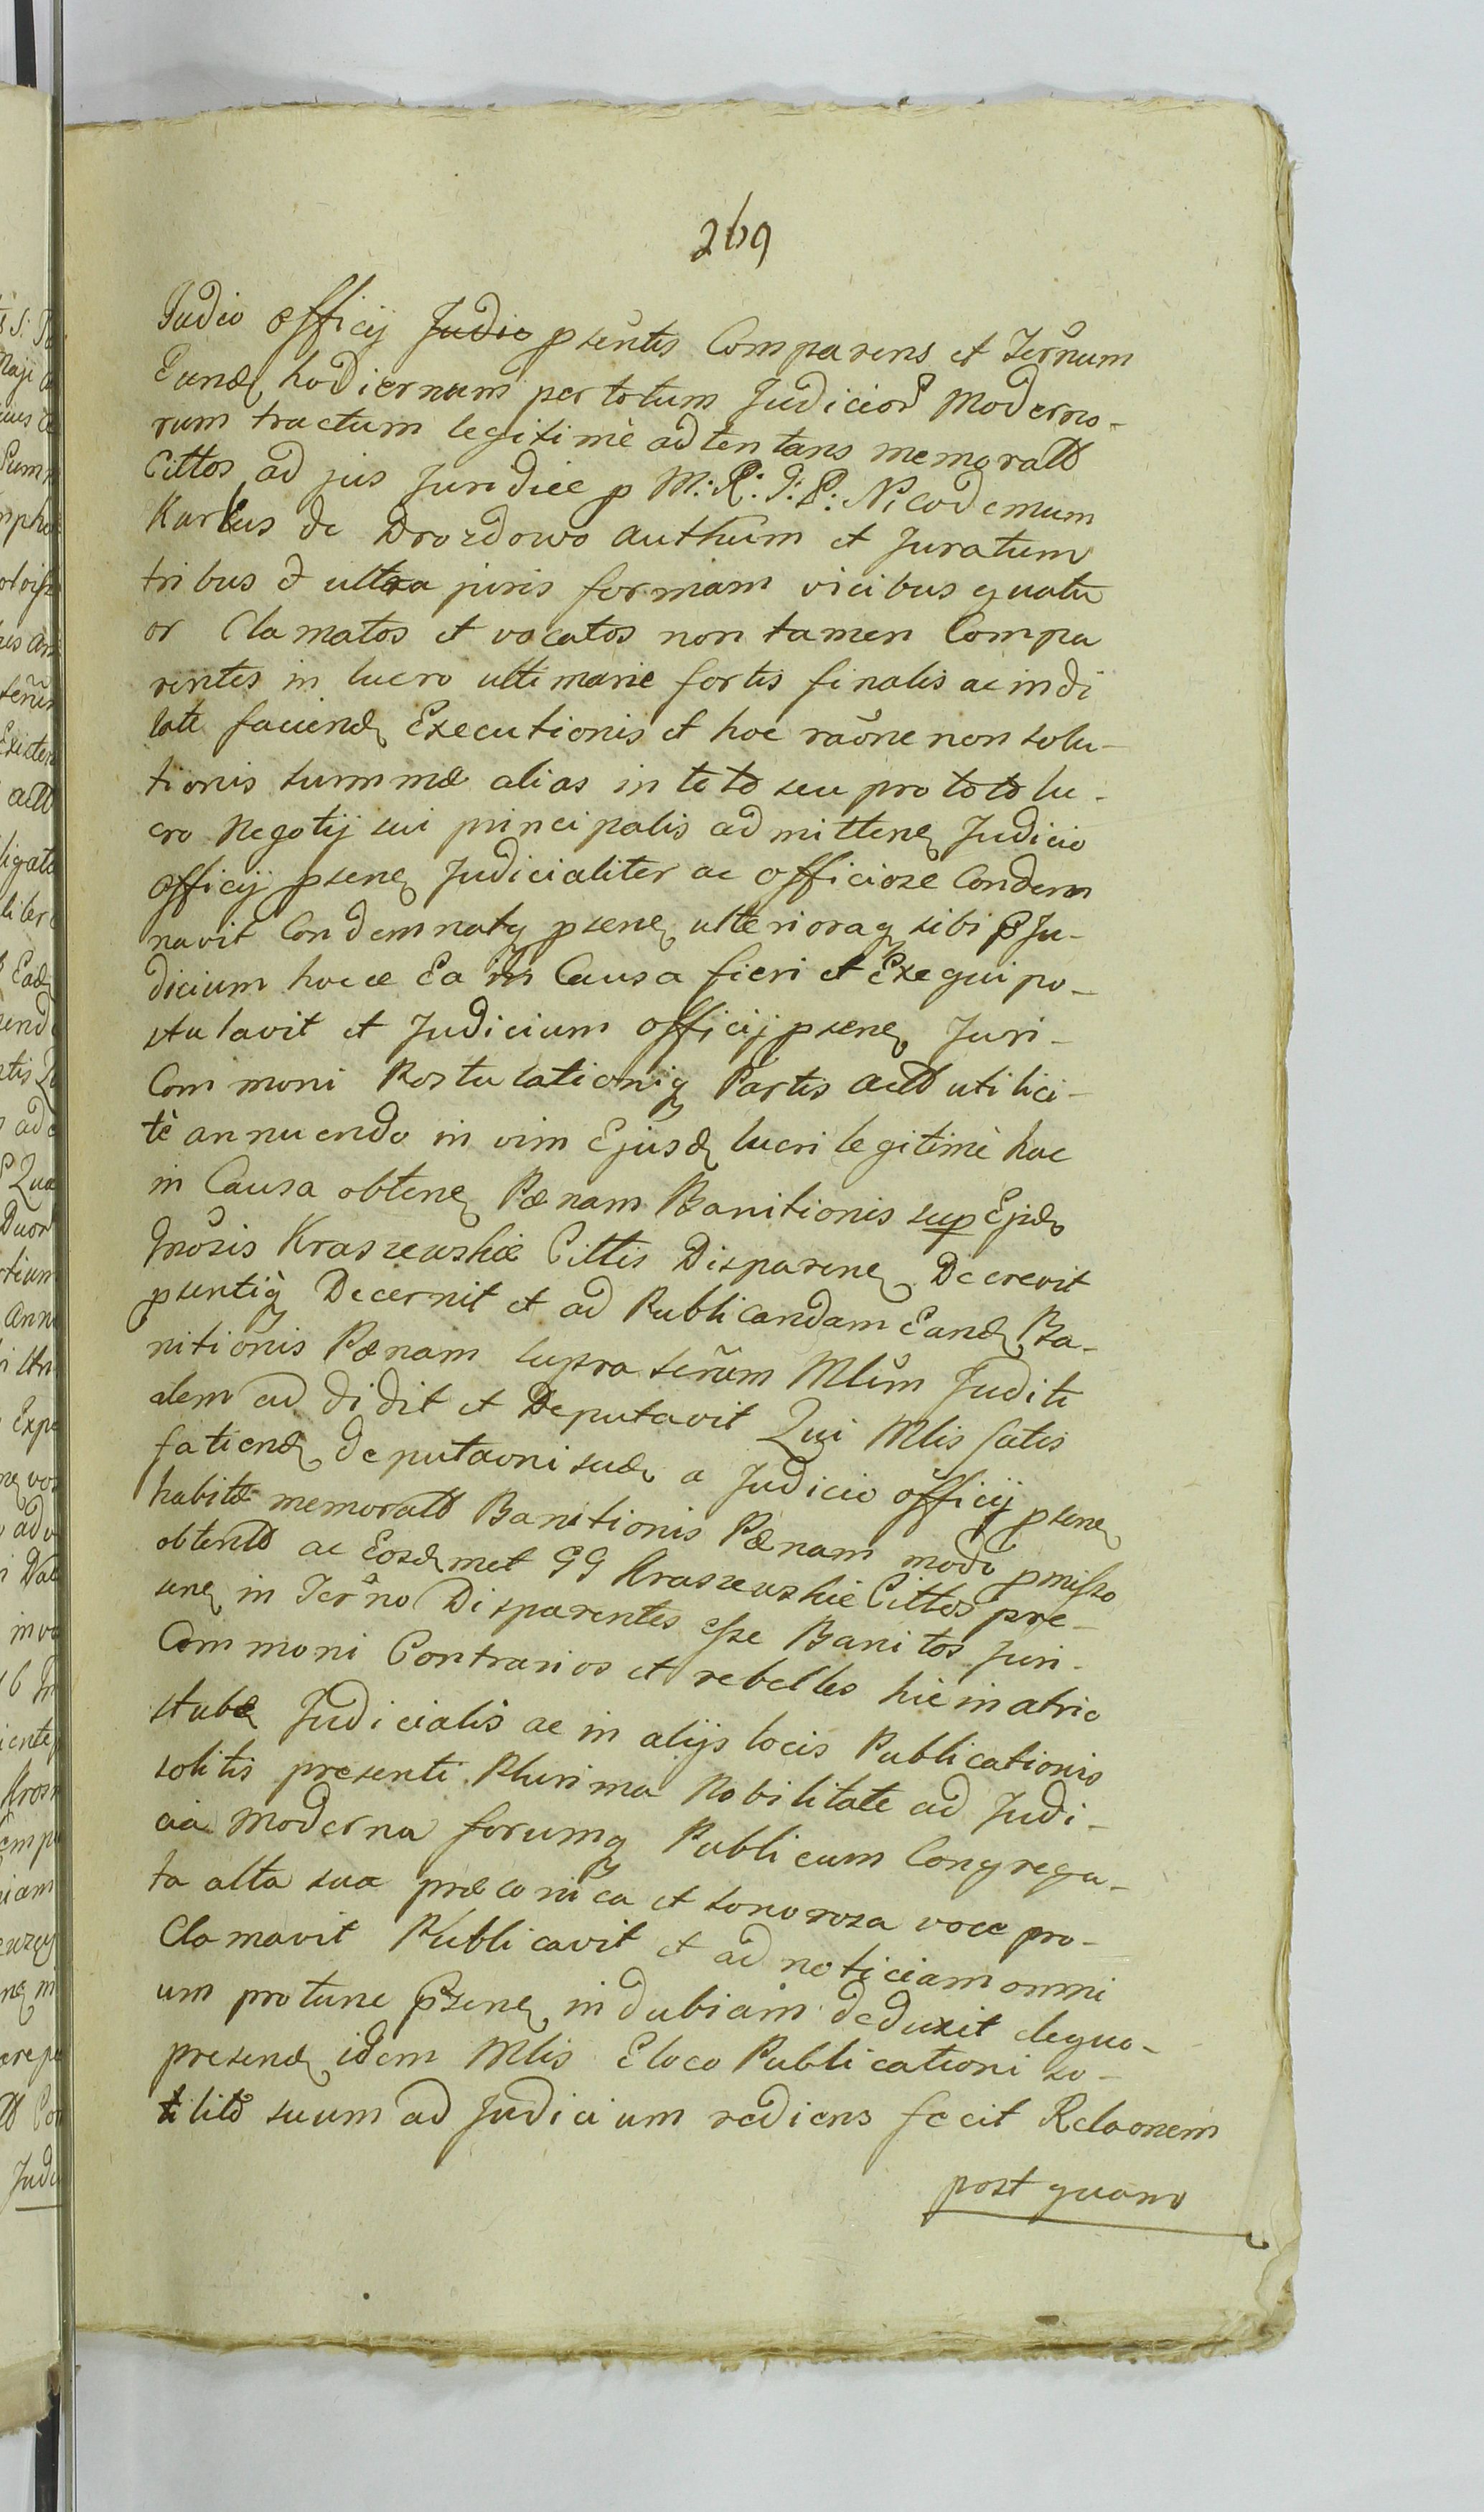 269
Judio officij Judic psentis Comparens et Ternum
Eund hodiernum per totum Judicior Moderno-
rum tractum legitimè adtentans memoratt
Cittos ad jus Juridice p M: R: J: P: Nicodemum
Karkus de Drozdowo authum et Juratum
tribus et ultra juris formam vicibus quatu
or Clamatos et vocatos non tamen Compa
rentes in lucro ultimarie fortis finalis ac indi
late faciend Executionis et hoc raõne non solu-
tionis summæ alias in toto seu pro toto lu-
cro Negotij sui principalis admitten Judicio
officij psen Judicialiter ac officiose Condem
navit Condemnatq psen ulterioraq sibi p Ju-
dicium hocce Ea in Causa fieri et Exequi po-
stulavit et Judicium officij psen Juri-
Commoni Postulationiq Partis actt uti lici-
tè annuendo in vim Ejusd lucri legitimè hac
in Causa obten Pænam Banitionis sup Ejsd
Gnosis Kraszewskie Cittis Disparen Decrevit
psentiq Decernit et ad Publicandam Eand Ba-
nitionis Pænam supra serum Mlem Juditi
alem addidit et Deputavit Qui Mlis satis
fatiend deputaoni suæ a Judicio officij psen
habitæ memoratt Banitionis Pænam modo pmisso
obtentt ac Eosdmet GG Kraszewskie Cittos pre-
sen in Terno Disparentes esse Banitos Juri-
Commoni Contrarios et rebelles hic in atrio
stubæ Judicialis ac in alijs locis Publicationis
solitis presenti Plurima Nobilitate ad Judi-
cia Moderna forumq Publicum Congrega-
ta alta sua præconica et sonorosa voce pro-
Clamavit Publicavit et ad noticiam omni
um protunc Psen indubiam deduxit dequo-
presend idem Mlis Eloco Publicationi so-
lito suum ad Judicium rediens fecit Relaonem
post quam